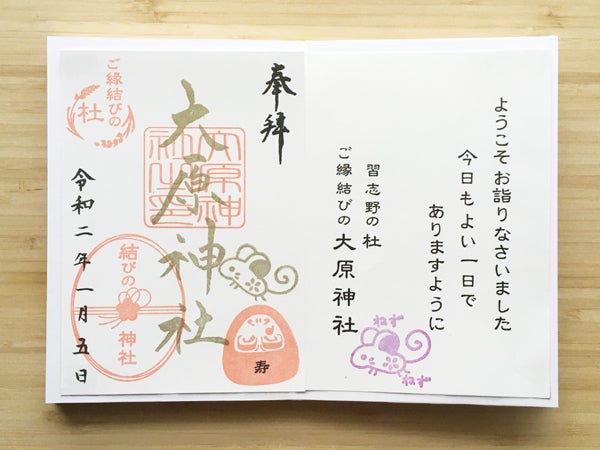 ようこそお詣りなさいました
今日もよい一日で
ありますように
習志野の杜
ご縁結びの 大原神社
ねず
ねず
奉拝
大原神社
大原神
社之印
ご縁結びの
杜
結びの
神社
寿
令和二年一月五日